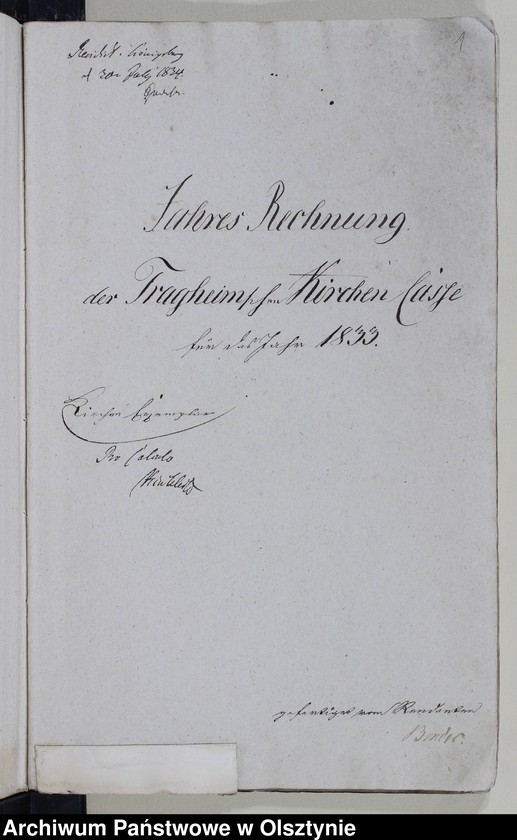 1
Revidirt. Königsberg
d 30n July 1834.
Jahres Rechnung.
der Tragheimschen Kirchen Casse
für das Jahr 1833.
Kirchen Exemplar
Pro Calculo
gefertiget vom Rendanten
Bender.
Archiwum Państwowe w Olsztynie